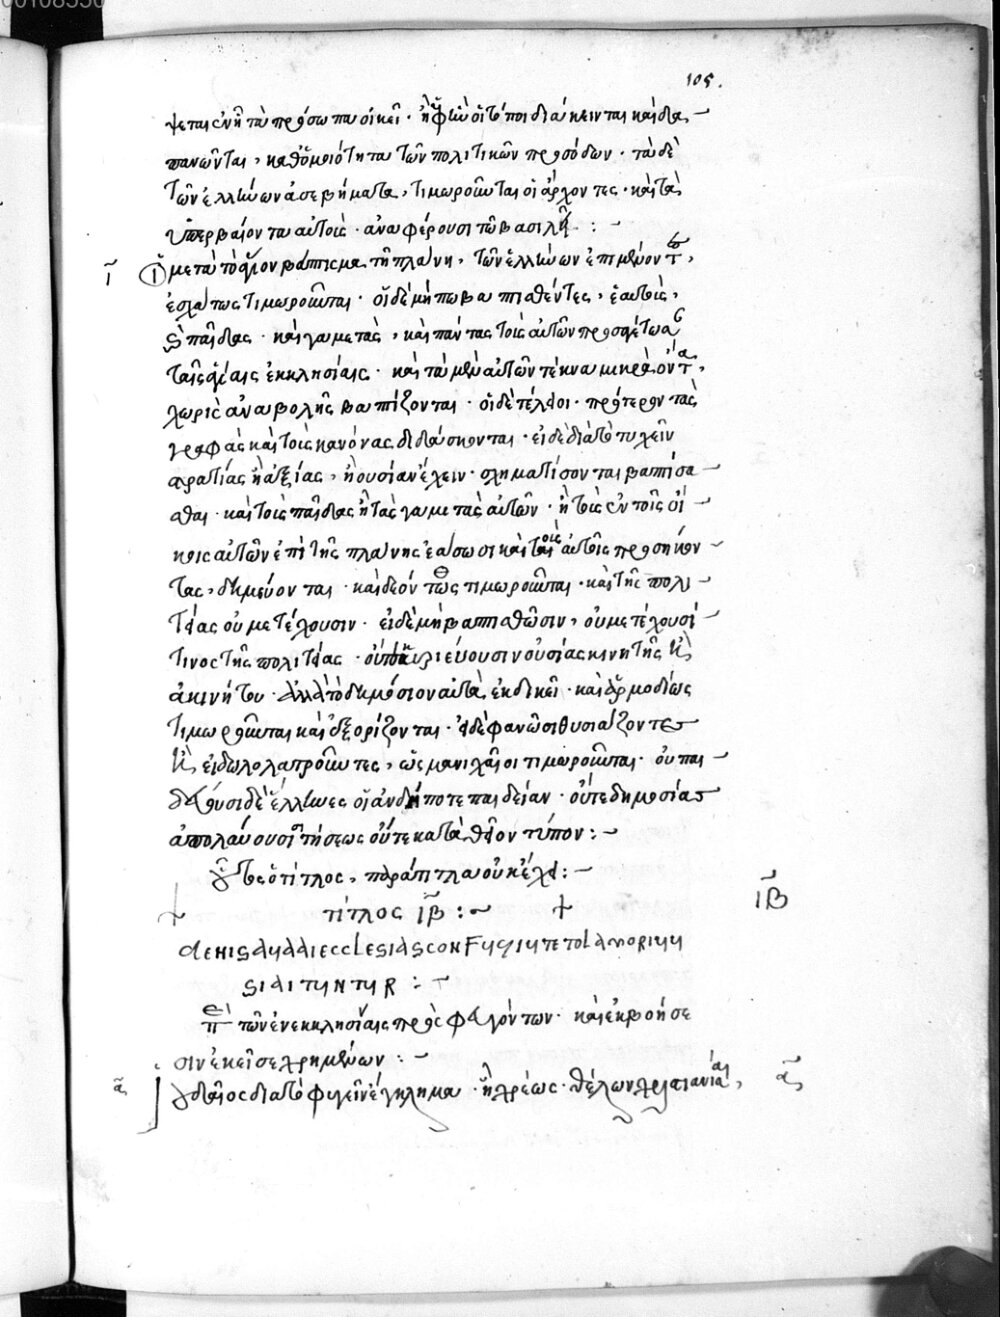 105.
ψεται ἐν ᾗ τὰ πρόσωπα οἰκεῖ · ἢ ἐφ' ὧν οἱ τόποι διάκεινται καὶ δα
πανῶνται, καθ' ὁμοιότητα τῶν πολιτικῶν προσόδων · τὰ δὲ
τῶν ἑλλήνων ἀσεβήματα, τιμωροῦνται οἱ ἄρχοντες · καὶ τὰ
ὑπερβαίοντα αὐτοὺς · ἀναφέρουσι τῷ βασιλεῖ : ~
ῑ Οἱ μετὰ τὸ ἅγιον βάπτισμα τῇ πλάνῃ, τῶν ἑλλήνων ἐπιμένοντες,
ἐσχάτως τιμωροῦνται · οἱ δὲ μήπω βαπτισθέντες, ἑαυτοὺς,
καὶ παῖδας · καὶ γαμετὰς, καὶ πάντας τοὺς αὐτῶν προσαγέτωσαν
ταῖς ἁγίαις ἐκκλησίαις · καὶ τὰ μὲν αὐτῶν τέκνα μικρὰ ὄντα,
χωρὶς ἀναβολῆς βαπτίζονται · οἱ δὲ τέλειοι · πρότερον τὰς
γραφὰς καὶ τοὺς κανόνας διδάσκονται · εἰ δὲ διὰ τὸ τυχεῖν
στρατίας ἢ ἀξίας, ἢ οὐσίαν ἔχειν · σχηματίσονται βαπτίσα
σθαι · καὶ τοὺς παῖδας ἢ τὰς γαμετὰς αὐτῶν · ἢ τοὺς ἐν τοῖς οἴ
κοις αὐτῶν ἐπὶ τῆς πλάνης ἐάσωσι καὶ τοὺς αὐτοῖς προσήκον
τας, δημεύονται · καὶ δεόντως τιμωροῦνται · καὶ τῆς πολι
τείας οὐ μετέχουσιν · εἰ δὲ μὴ βαπτισθῶσιν, οὐ μετέχουσί
τινος τῆς πολιτείας · οὔτε κυριεύουσιν οὐσίας κινητῆς καὶ
ἀκινήτου · ἀλλὰ τὸ δημόσιον αὐτὰ ἐκδικεῖ · καὶ ἁρμοδίως
τιμωροῦνται καὶ ἐξορίζονται · εἰ δὲ φανῶσι θυσιάζοντες
καὶ εἰδωλολατροῦντες, ὡς μανιχαῖοι τιμωροῦνται · οὐ παι
δεύουσι δὲ ἕλληνες οἱανδήποτε παιδείαν · οὔτε δημοσίας
ἀπολαύουσι σιτήσεως οὔτε κατὰ θεῖον τύπον : ~
οὗτος ὁ τίτλος, παράτιτλα οὐκ ἔχει : ~
τίτλος ῑβ : ~ ῑβ
de his qui ad ecclesias confugiunt et
Περὶ τῶν ἐν ἐκκλησίαις προσφευγόντων · καὶ ἐκβοήσε
σιν ἐκεῖσε χρημένων : ~
ᾱ Ἰουδαῖος διὰ τὸ φυγεῖν ἔγκλημα · ἢ χρέως · θέλων χριστιανίσαι, ᾱ